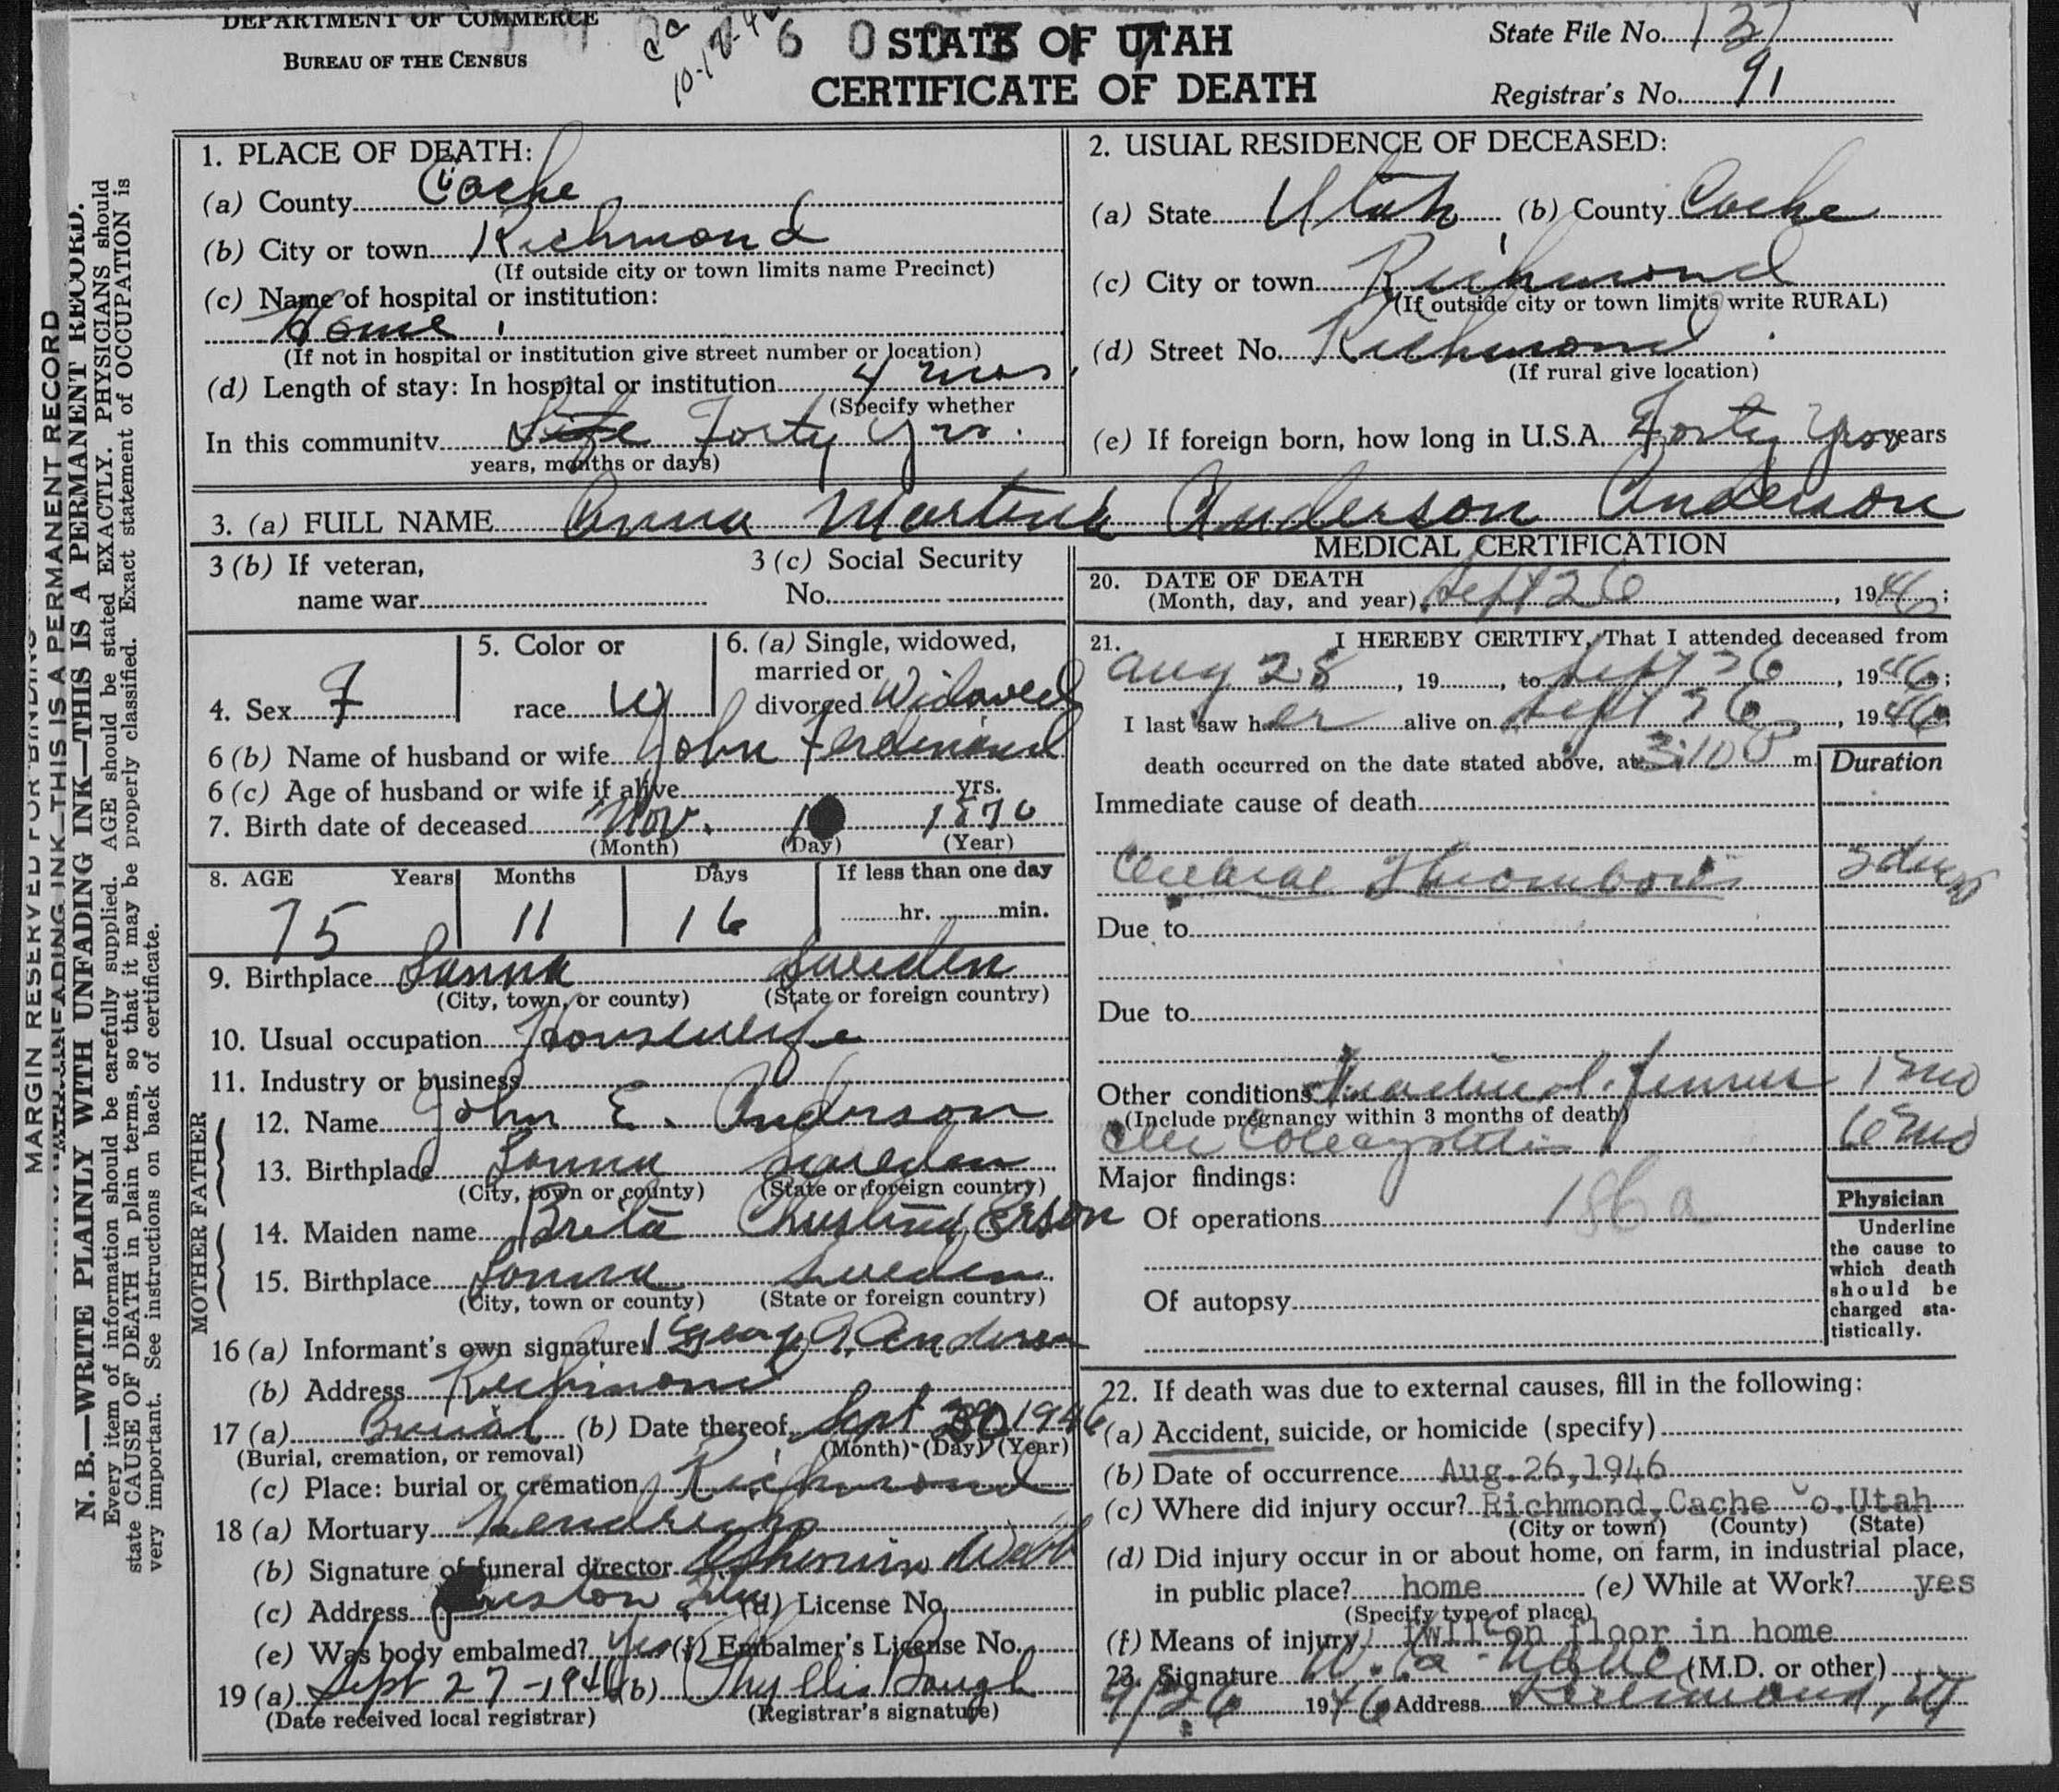 DEPARTMENT OF COMMERCE
BUREAU OF THE CENSUS
STATE OF UTAH
CERTIFICATE OF DEATH
State File No. 137
Registrar's No. 91
MARGIN RESERVED FOR BINDING
WITH UNFADING INK—THIS IS A PERMANENT RECORD
N. B.—WRITE PLAINLY WITH UNFADING INK—THIS IS A PERMANENT RECORD.
Every item of information should be carefully supplied. AGE should be stated EXACTLY. PHYSICIANS should
state CAUSE OF DEATH in plain terms, so that it may be properly classified. Exact statement of OCCUPATION is
very important. See instructions on back of certificate.
1. PLACE OF DEATH:
(a) County Cache
(b) City or town Richmond
(If outside city or town limits name Precinct)
(c) Name of hospital or institution:
Home
(If not in hospital or institution give street number or location)
(d) Length of stay: In hospital or institution 4 mos.
(Specify whether
In this community Life Forty yrs.
years, months or days)
2. USUAL RESIDENCE OF DECEASED:
(a) State Utah (b) County Cache
(c) City or town Richmond
(If outside city or town limits write RURAL)
(d) Street No. Richmond
(If rural give location)
(e) If foreign born, how long in U.S.A. Forty yrs years
3. (a) FULL NAME Anna Martina Anderson Anderson
3 (b) If veteran,
name war
3 (c) Social Security
No.
4. Sex F
5. Color or
race W
6. (a) Single, widowed,
married or
divorced Widowed
6 (b) Name of husband or wife John Ferdinand
6 (c) Age of husband or wife if alive yrs.
7. Birth date of deceased Nov. 10 1870
(Month) (Day) (Year)
8. AGE Years Months Days If less than one day
75 11 16 hr. min.
9. Birthplace Sanna Sweden
(City, town, or county) (State or foreign country)
10. Usual occupation Housewife
11. Industry or business
FATHER
12. Name John E. Anderson
13. Birthplace Sanna Sweden
(City, town or county) (State or foreign country)
MOTHER
14. Maiden name Brita Christina Erson
15. Birthplace Sanna Sweden
(City, town or county) (State or foreign country)
16 (a) Informant's own signature George A. Anderson
(b) Address Richmond
17 (a) Burial (b) Date thereof Sept 30 1946
(Burial, cremation, or removal) (Month) (Day) (Year)
(c) Place: burial or cremation Richmond
18 (a) Mortuary Hendricks
(b) Signature of funeral director Sherwin Webb
(c) Address Preston Ida (d) License No.
(e) Was body embalmed? Yes (f) Embalmer's License No.
19 (a) Sept 27 - 1946 (b) Phyllis Baugh
(Date received local registrar) (Registrar's signature)
MEDICAL CERTIFICATION
20. DATE OF DEATH
(Month, day, and year) Sept 26, 1946;
21. I HEREBY CERTIFY, That I attended deceased from
Aug 28, 19 , to Sept 26, 1946;
I last saw her alive on Sept 26, 1946
death occurred on the date stated above, at 3:10 P m.
Duration
Immediate cause of death
Cerebral Thrombosis 2 days
Due to
Due to
Other conditions Fracture l. femur 1 mo
(Include pregnancy within 3 months of death)
6 mo
Major findings:
Of operations 186a
Of autopsy
Physician
Underline
the cause to
which death
should be
charged sta-
tistically.
22. If death was due to external causes, fill in the following:
(a) Accident, suicide, or homicide (specify)
(b) Date of occurrence Aug.26,1946
(c) Where did injury occur? Richmond,Cache Co.Utah
(City or town) (County) (State)
(d) Did injury occur in or about home, on farm, in industrial place,
in public place? home (e) While at Work? yes
(Specify type of place)
(f) Means of injury on floor in home
23. Signature (M.D. or other)
9/26 1946 Address Richmond, Ut